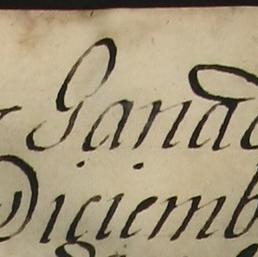 Ganad
Diciemb